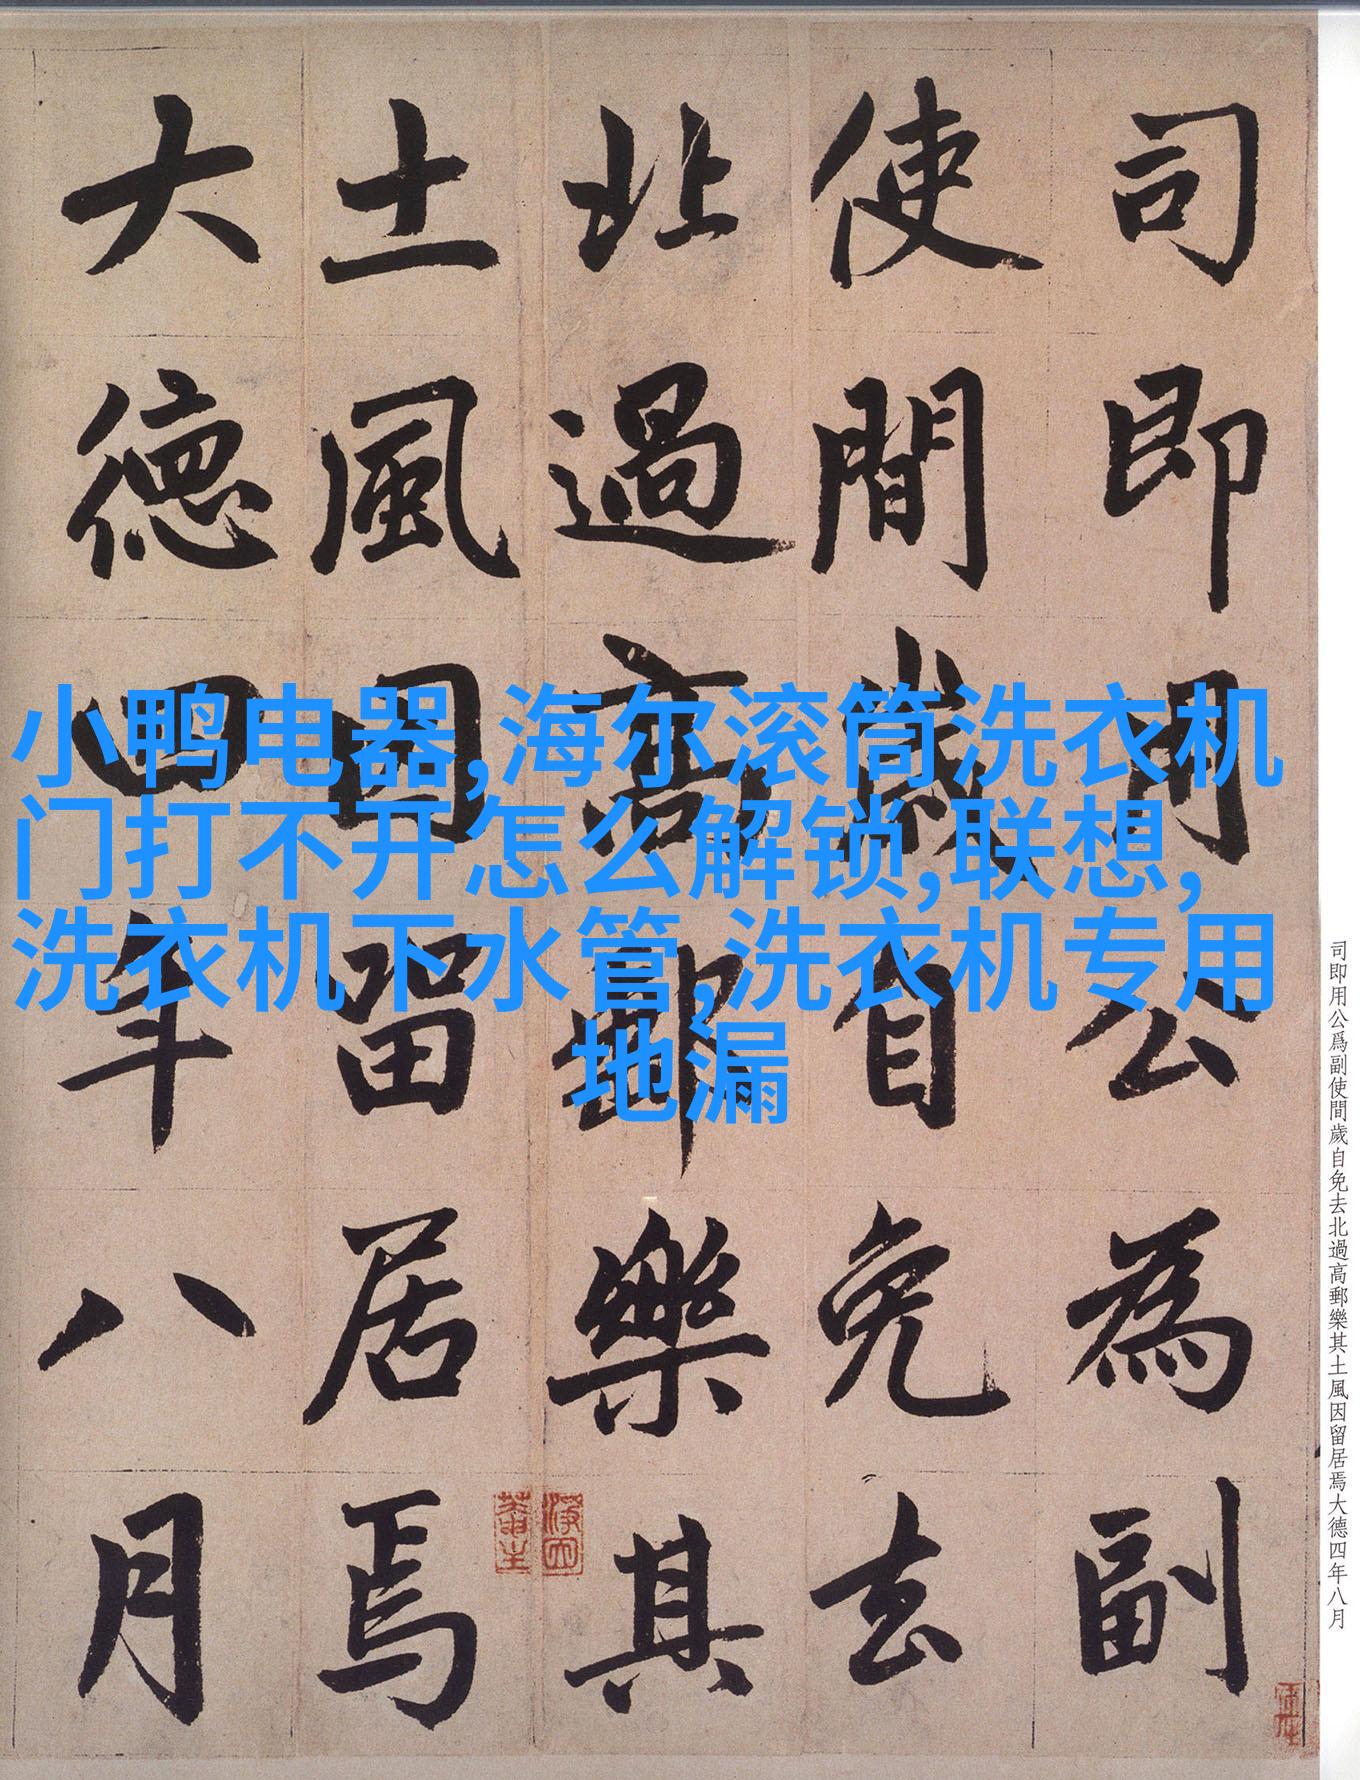 司即用公為副
使間歲自免去
北過高郵樂其
土風因留居焉
大德四年八月
小鸭电器,海尔滚筒洗衣机
门打不开怎么解锁,联想,
洗衣机下水管,洗衣机专用
地漏
司即用公爲副使間歲自免去北過高郵樂其土風因留居焉大德四年八月